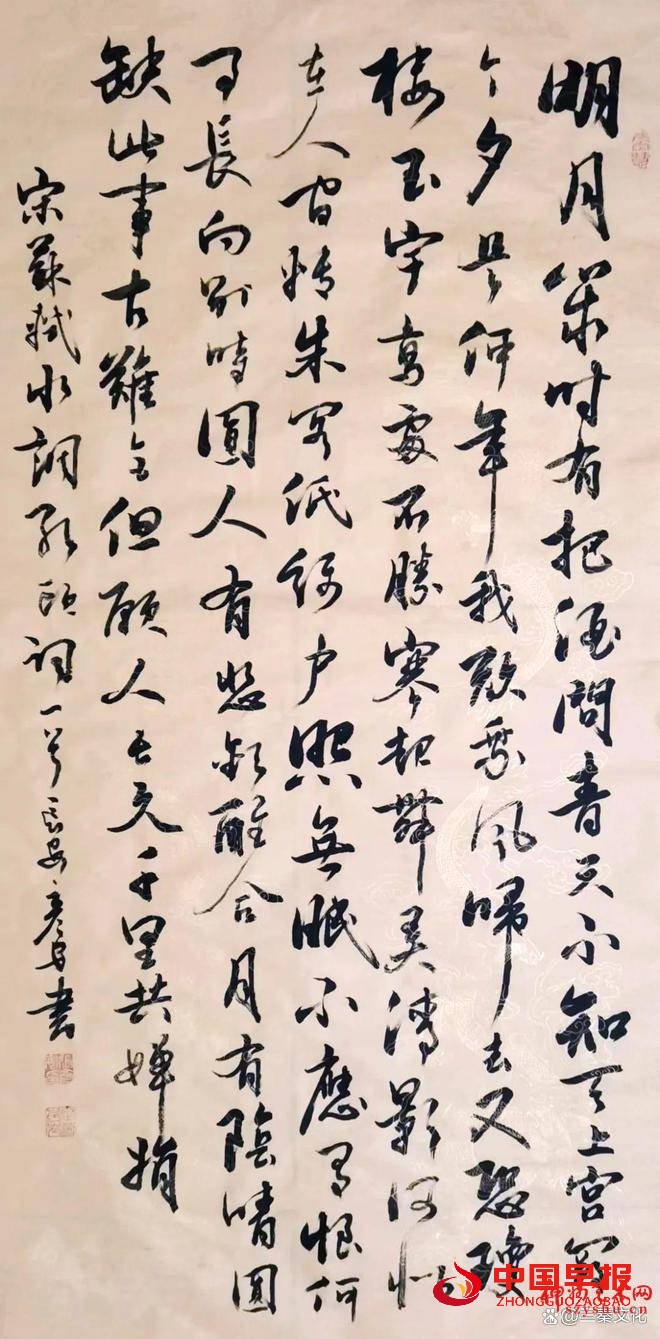 明月幾时有把酒問青天不知天上宫闕
今夕是何年我欲乘風歸去又恐瓊
樓玉宇高處不勝寒起舞弄清影何似
在人间轉朱閣低綺户照無眠不應有恨何
事長向别時圓人有悲歡離合月有陰晴圓
缺此事古難全但願人長久千里共嬋娟
宋蘇軾水調歌頭詞一首長安書
中国早报
ZHONGGUOZAOBAO
szyshu.cn
三秦文化